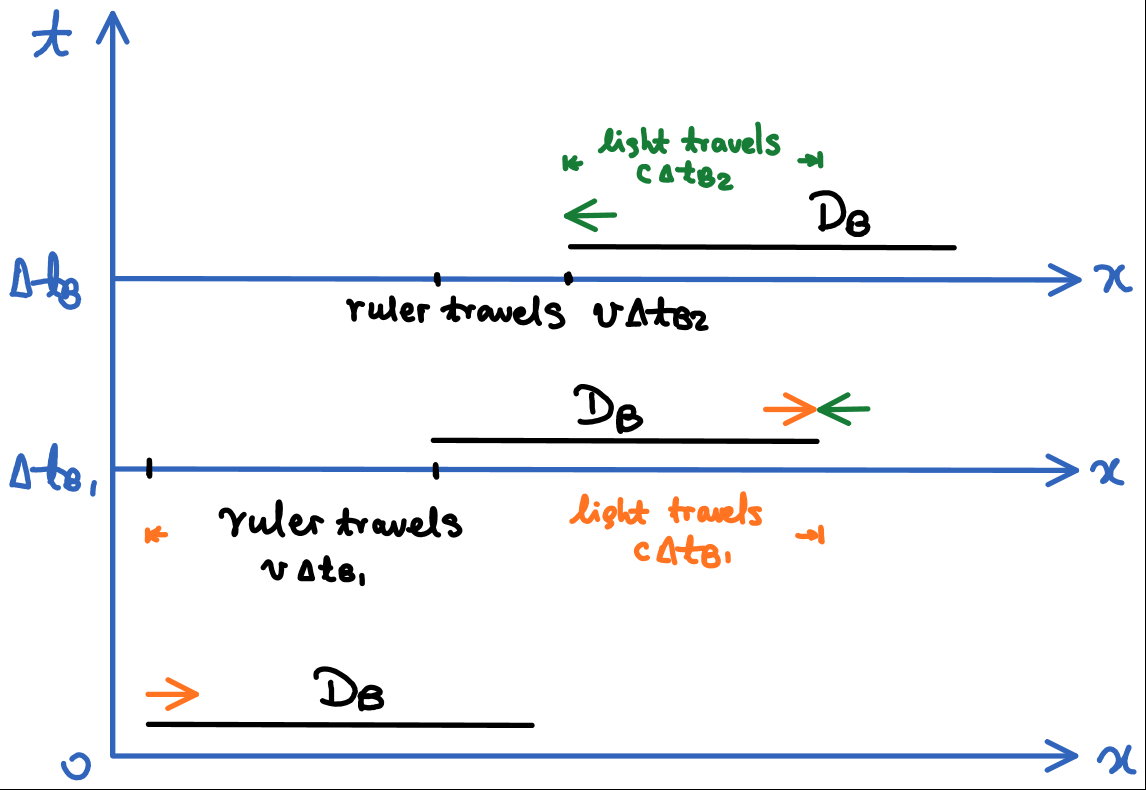 t
light travels
cΔt_B2
D_B
Δt_B
x
ruler travels vΔt_B2
D_B
Δt_B1
x
ruler travels
vΔt_B1
light travels
cΔt_B1
D_B
0
x